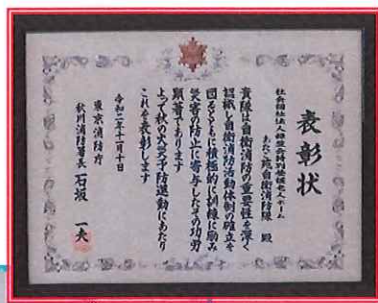 表彰状
社会福祉法人 特別養護老人ホーム
自衛消防隊 殿
貴隊は自衛消防の重要性を深く
認識し自衛消防活動体制の確立を
図るとともに積極的に訓練に励み
災害の防止に寄与したその功労
顕著であります
よって秋の火災予防運動にあたり
これを表彰します
令和二年十一月十日
東京消防庁
秋川消防署長 石坂 一夫